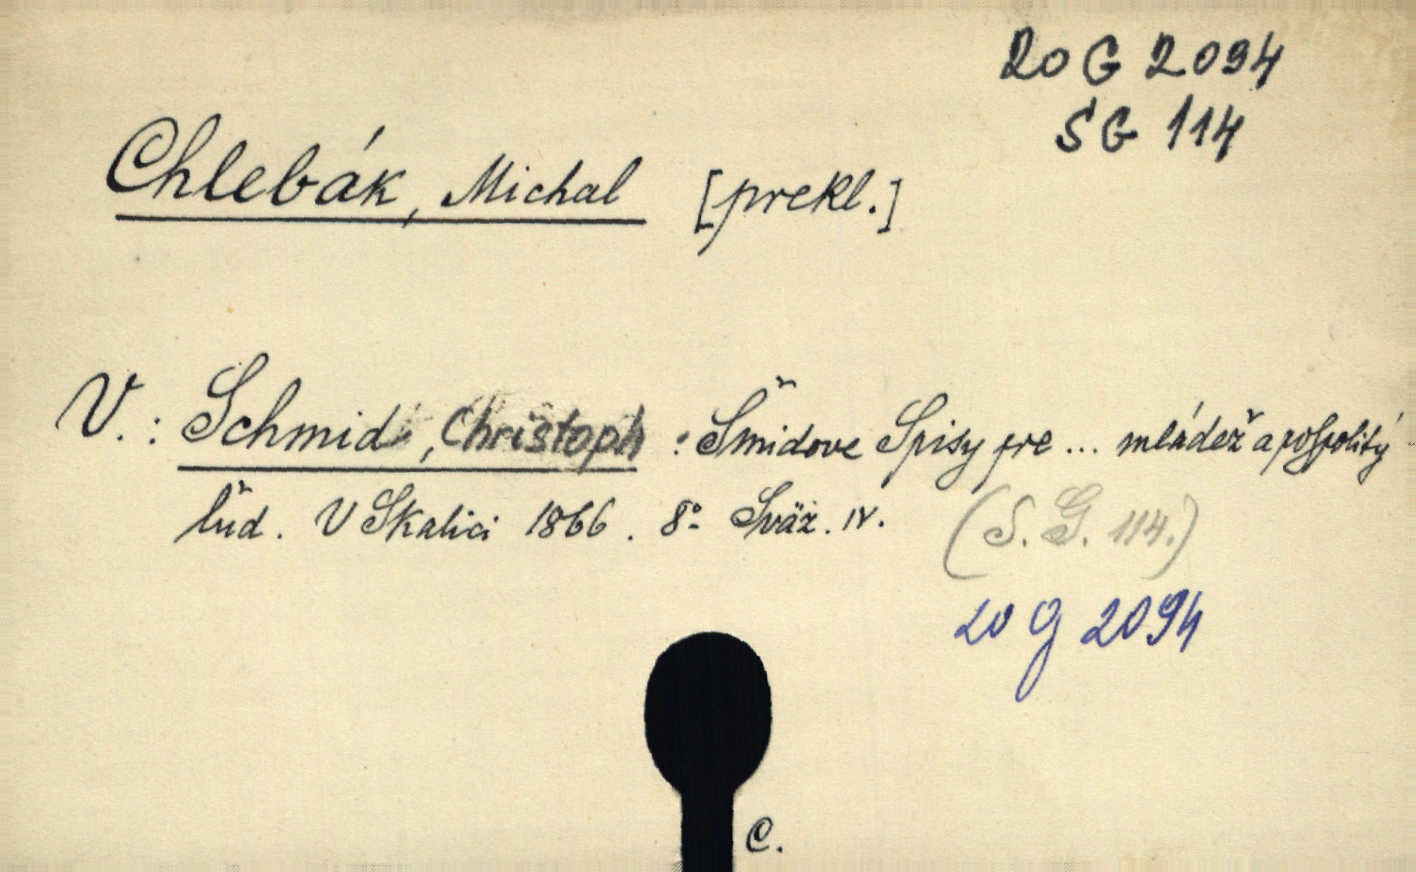 20 G 2094
SG 114
Chlebák, Michal [prekl.]
V.: Schmid, Christoph: Šmidove Spisy pre ... mládež a pospolitý
ľud. V Skalici 1866. 8º Sväz. IV. (S. G. 114.)
20 G 2094
C.